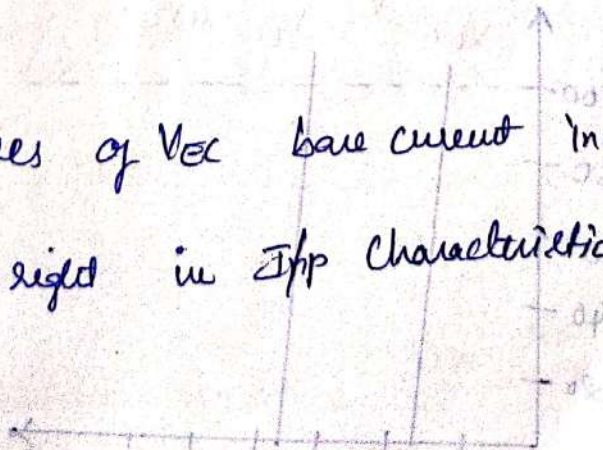 es of VEC base current in
right in I/p Characteristic